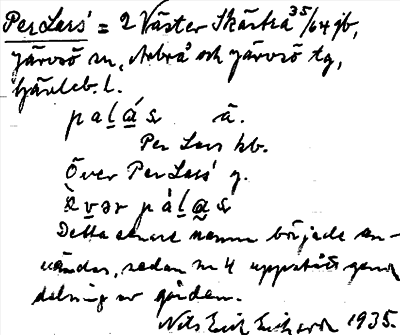 Per Lars' = 2 Väster Skästra 35/64 jb,
Järvsö sn, Arbrå och Järvsö tg,
Gävleb. l.
pal̲a̲s ä.
Per Lars hb.
Över Per Lars' g.
ə̀v̲ər pál̲a̲s
Detta senare namn började an-
vändas, sedan nr 4 uppstått genom
delning av gården.
Nils Erik 1935.